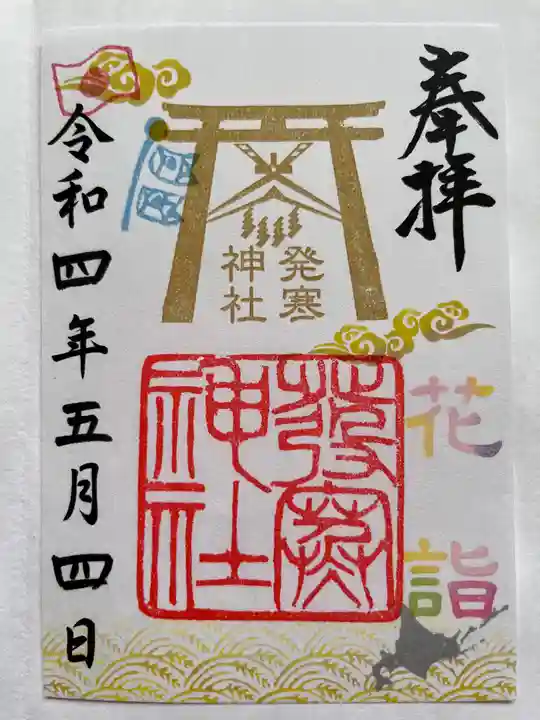 奉拝
発寒
神社
花詣
發寒
神社
令和四年五月四日